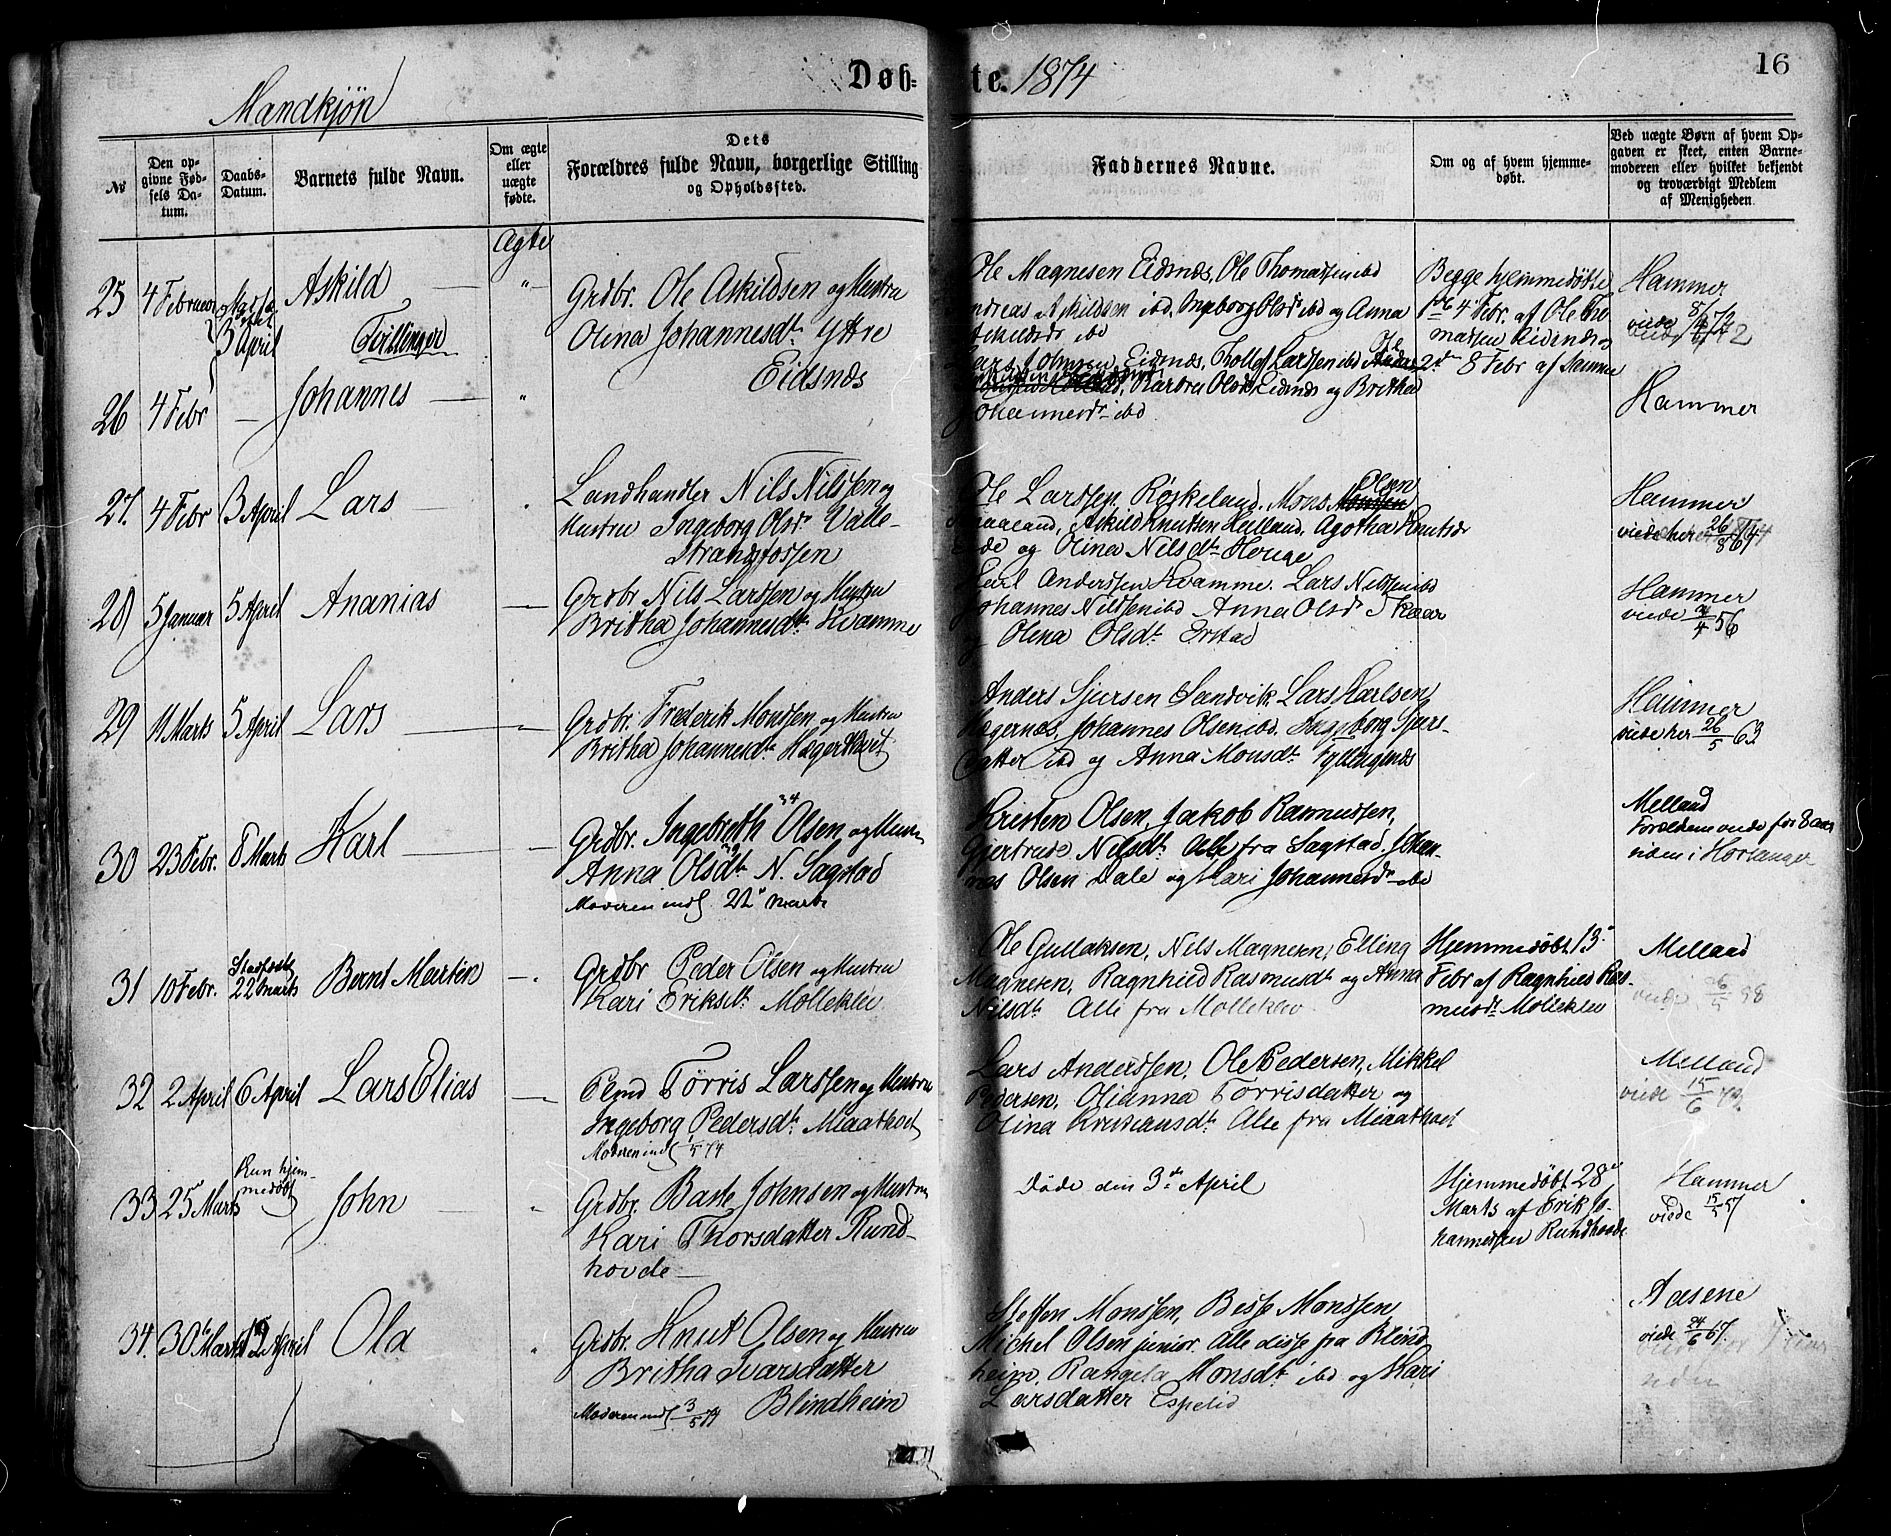 16
Døb- te. 1874
Mandkjøn
№
Den opgivne Fødsels Datum.
Daabs-Datum.
Barnets fulde Navn.
Om ægte eller uægte fødte.
Dets Forældres fulde Navn, borgerlige Stilling og Opholdssted.
Faddernes Navne.
Om og af hvem hjemmedøbt.
Ved uægte Børn af hvem Opgaven er skeet, enten Barnemoderen eller hvilket bekjendt og troværdigt Medlem af Menigheden
Ægte
25 4 Februar 3 April Askild
Tvillinger
Grdbr. Ole Askildsen og Hustru
Olina Johannesdt. Yttre
Eidsnæs
Ole Magnesen Eidsnæs, Ole Thomassen ibd
Andreas Askildsen ibd, Ingeborg Olsdt ibd og Anna
Askildsdt ibd
Begge hjemmedøbte
4 Febr. af Ole Tho-
massen Eidsnæs
2d 8 Febr af Samme
Hammer
viede
26 4 Febr — Johannes
Lars Johnsen Eidsnæs, Thollef Larssen ibd
Eidsnæs og Britha
Johannesdt ibd
Hammer
27. 4 Febr 3 April Lars
Landhandler Nils Nilssen og
Hustru Ingeborg Olsdt Valle-
Strandfossen
Ole Larssen Røskeland, Mons Olsen
Askild Knutsen Helland, Agotha Knutsdt
Eide og Olina Nilsdt. Houge
Hammer
viede her 26/8 64
28 5 Januar 5 April Ananias
Grdbr Nils Larssen og Hustru
Britha Johannesdt. Kvamme
Karl Anderssen Kvamme. Lars Nilssen ibd
Johannes Nilssen ibd Anna Olsdt Skaar
og Olena Olsdt. Erstad
Hammer
viede 24/4 56
29 11 Marts 5 April Lars
Grdbr. Frederik Monssen og Hustru
Britha Johannesdt.
Anders Sjursen Sandvik, Lars Karlsen
Hægernæs, Johannes Olsen ibd. Ingeborg Sjurs-
datter ibd og Anna Monsdt. Fyllingsnæs
Hammer
viede her 26/5 63
30 23 Febr. 8 Marts Karl
Grdbr. Ingebreth Olsen og Hustru
Anna Olsdt. N. Sagstad
Moderen indl 22 marts
Kristen Olsen, Jakob Rasmussen,
Gjertrude Nilsdt. Alle fra Sagstad, Johan-
nes Olsen Dale og Kari Johannesdt ibd
Melland
Forældrene viede for 8 aar
siden i Hosanger
31 10 Febr. Stadfæst 22 marts Bernt Martin
Grdbr Peder Olsen og Hustru
Kari Eriksdt. Mølleklev
Ole Gullaksen, Nils Magnesen, Elling
Magnesen, Ragnhild Rasmusdt. og Anna
Nilsdt. Alle fra Mølleklev
Hjemmedøbt 13
Febr af Ragnhild Ras-
musdt Mølleklev
Melland
viede
32 2 April 6 April Lars Elias
Torris Larssen og Hustru
Ingeborg Pedersdt. Miaatvedt
Moderen indl
Lars Anderssen, Ole Pedersen, Mikkel
Pedersen, Olianna Torrisdatter og
Olina Kristiansdt. Alle fra Miaatvedt
Melland
viede 15/6 73
33 25 Marts Kun hjem-
medøbt John
Grdbr. Baste Johnsen og Hustru
Kari Thorsdatter Rund-
hovde
Døde den 3die April
Hjemmedøbt 28
Marts af Erik Jo-
hannessen Rundhovde
Hammer
viede
34. 30 Marts 12 April Ola
Grdbr. Knut Olsen og Hustru
Britha Ivarsdatter
Blindheim
Moderen indl 3/5 74
Steffen Monssen, Besse Monssen
Michel Olsen junior. Alle disse fra Blind-
heim, Rangela Monsdt ibd og Kari
Larsdatter Espelid
Aasene
viede 24/6 67.